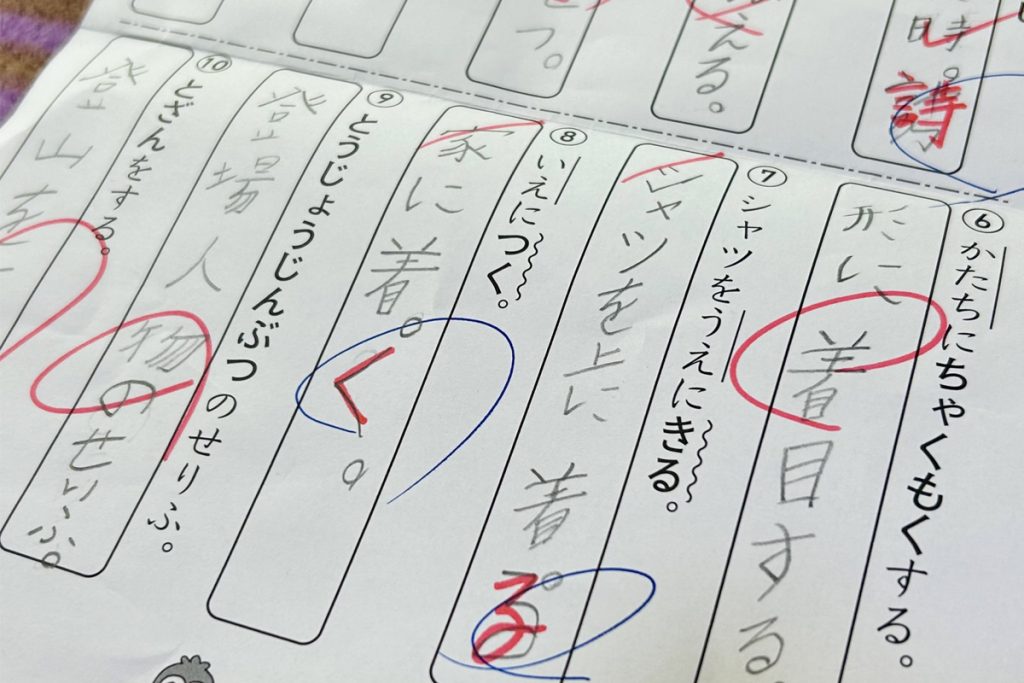 時。
詩
える。
つ。
⑥かたちにちゃくもくする。
形に着目する。
⑦シャツをうえにきる。
シャツを上に着。
る
⑧いえにつく。
家に着。
く。
⑨とうじょうじんぶつのせりふ。
登場人物のせりふ。
⑩とざんをする。
登山を